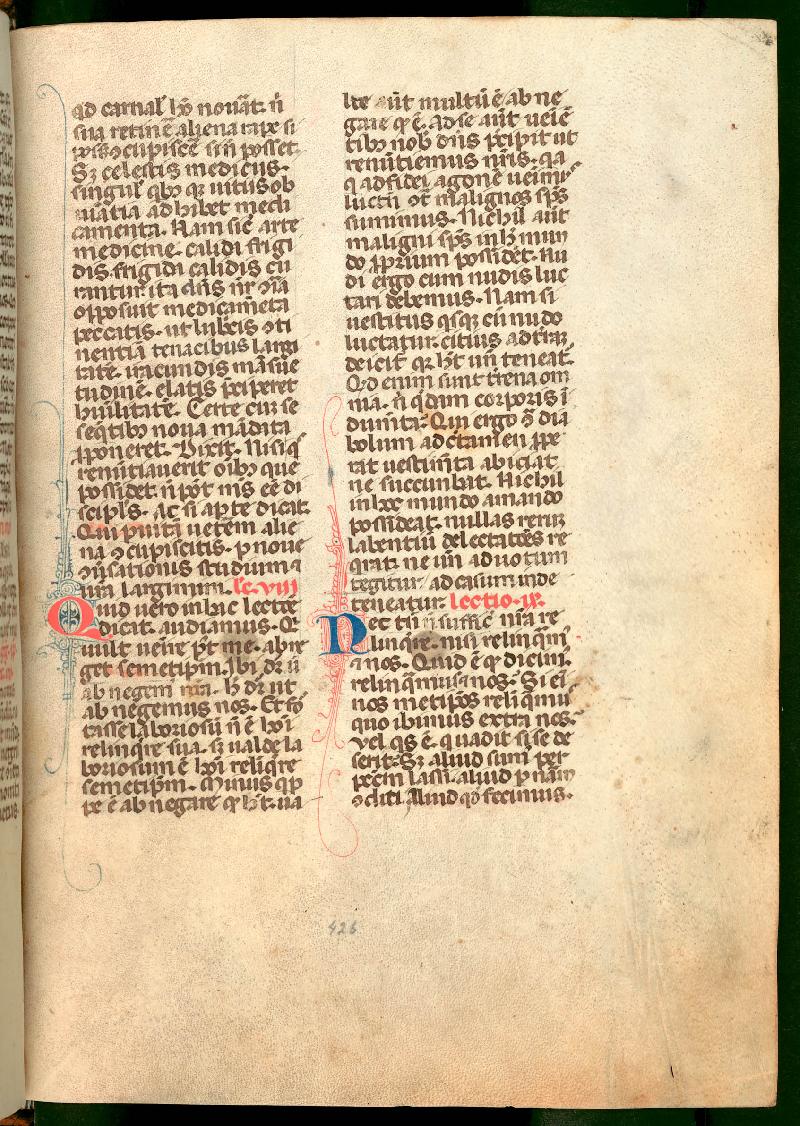 qd carnal' hō nouāt. n̄
sua retinē aliena rape si
posset ɔcupiscē si nō posset.
Sꝫ celestis medicus.
singul' qbꝫ qꝫ uitiis ob
uiātia adhibet medi
camenta. Nam sic̄ arte
medicine. calidi frigi
dis. frigida calidis cu
rantur ita dn̄s nr̄ ɔͬia
opposuit medicamēta
peccatis. ut lubͥcis ɔti
nentiā tenacibus largi
tatē. iracundis māsue
tudinē. elatis p̄ciperet
huīlitatē. Certe cū se
seqntibꝫ noua mādata
ꝓponeret. Dixit. Nisi qͥs
renūtiauerit oīb' que
possidet. n̄ pōt m̄s ēē di
scipl's. Ac si aꝑte dicat.
Qui p uitā ueterē alie
na ɔcupiscitis. p noue
ɔūsationis studium
urā largimini. lc̄. viii
Quid uero in hac lectōe
dicat. audiamus. Qi
uult uenire pt me. abne
get semetip̄m. Ibi dr̄ ū
abnegem nr̄a. h̄ dr̄ ut
abnegemus nos. Et for
tasse laboriosū n̄ ē hōi
relinqre sua. sꝫ ualde la
boriosum ē hōi reliqre
semetip̄m. Minus qͥp
pe ē abnegare qd̄ hꝫ. ua
lte aūt multū ē abne
gare qd̄ ē. Ad se aūt ueīē
tibꝫ nob dn̄s p̄cipit ut
renūtiemus nr̄is. qͥa
qͥ ad fidei agonē uenimꝰ
luctā ɔͭ malignos sp̄s
sumimus. Nichil aūt
maligni sp̄s in h mun
do ꝓprium possidēt. Nu
di ergo cum nudis luc
tari debemus. Nam si
uestitus qͥsqͣ cū nudo
luctatur. citius ad trā
deicit' qꝫ hꝫ un̄ teneat'.
Qd enim sunt t̄rena om
nia. n̄ qͥdam corporis ī
dumēta. Qui ergo ɔͭ dia
bolum ad c̄tamen ꝓpe
rat uestim̄ta abiciat.
ne succumbat. Nichil
in hoc mundo amando
possideat. nullas rerū
labentiū delectatōes re
qͥrat. ne un̄ ad uotum
tegitur. ad casum inde
teneatur. Lectio. ix.
Nec tn̄ sufficit nr̄a re
linqre. nisi relinqͣm'
⁊ nos. Quid ē qd̄ dicim'.
relinqͣmus ⁊ nos. Si eī
nos metip̄os reliqͥmus
quo ibimus extra nos.
Vel qͥs ē. qͥ uadit si se de
serit. Sꝫ aliud sum' per
pccm lapsi. aliud p nām
ɔditi. Aliud qd fecimus.